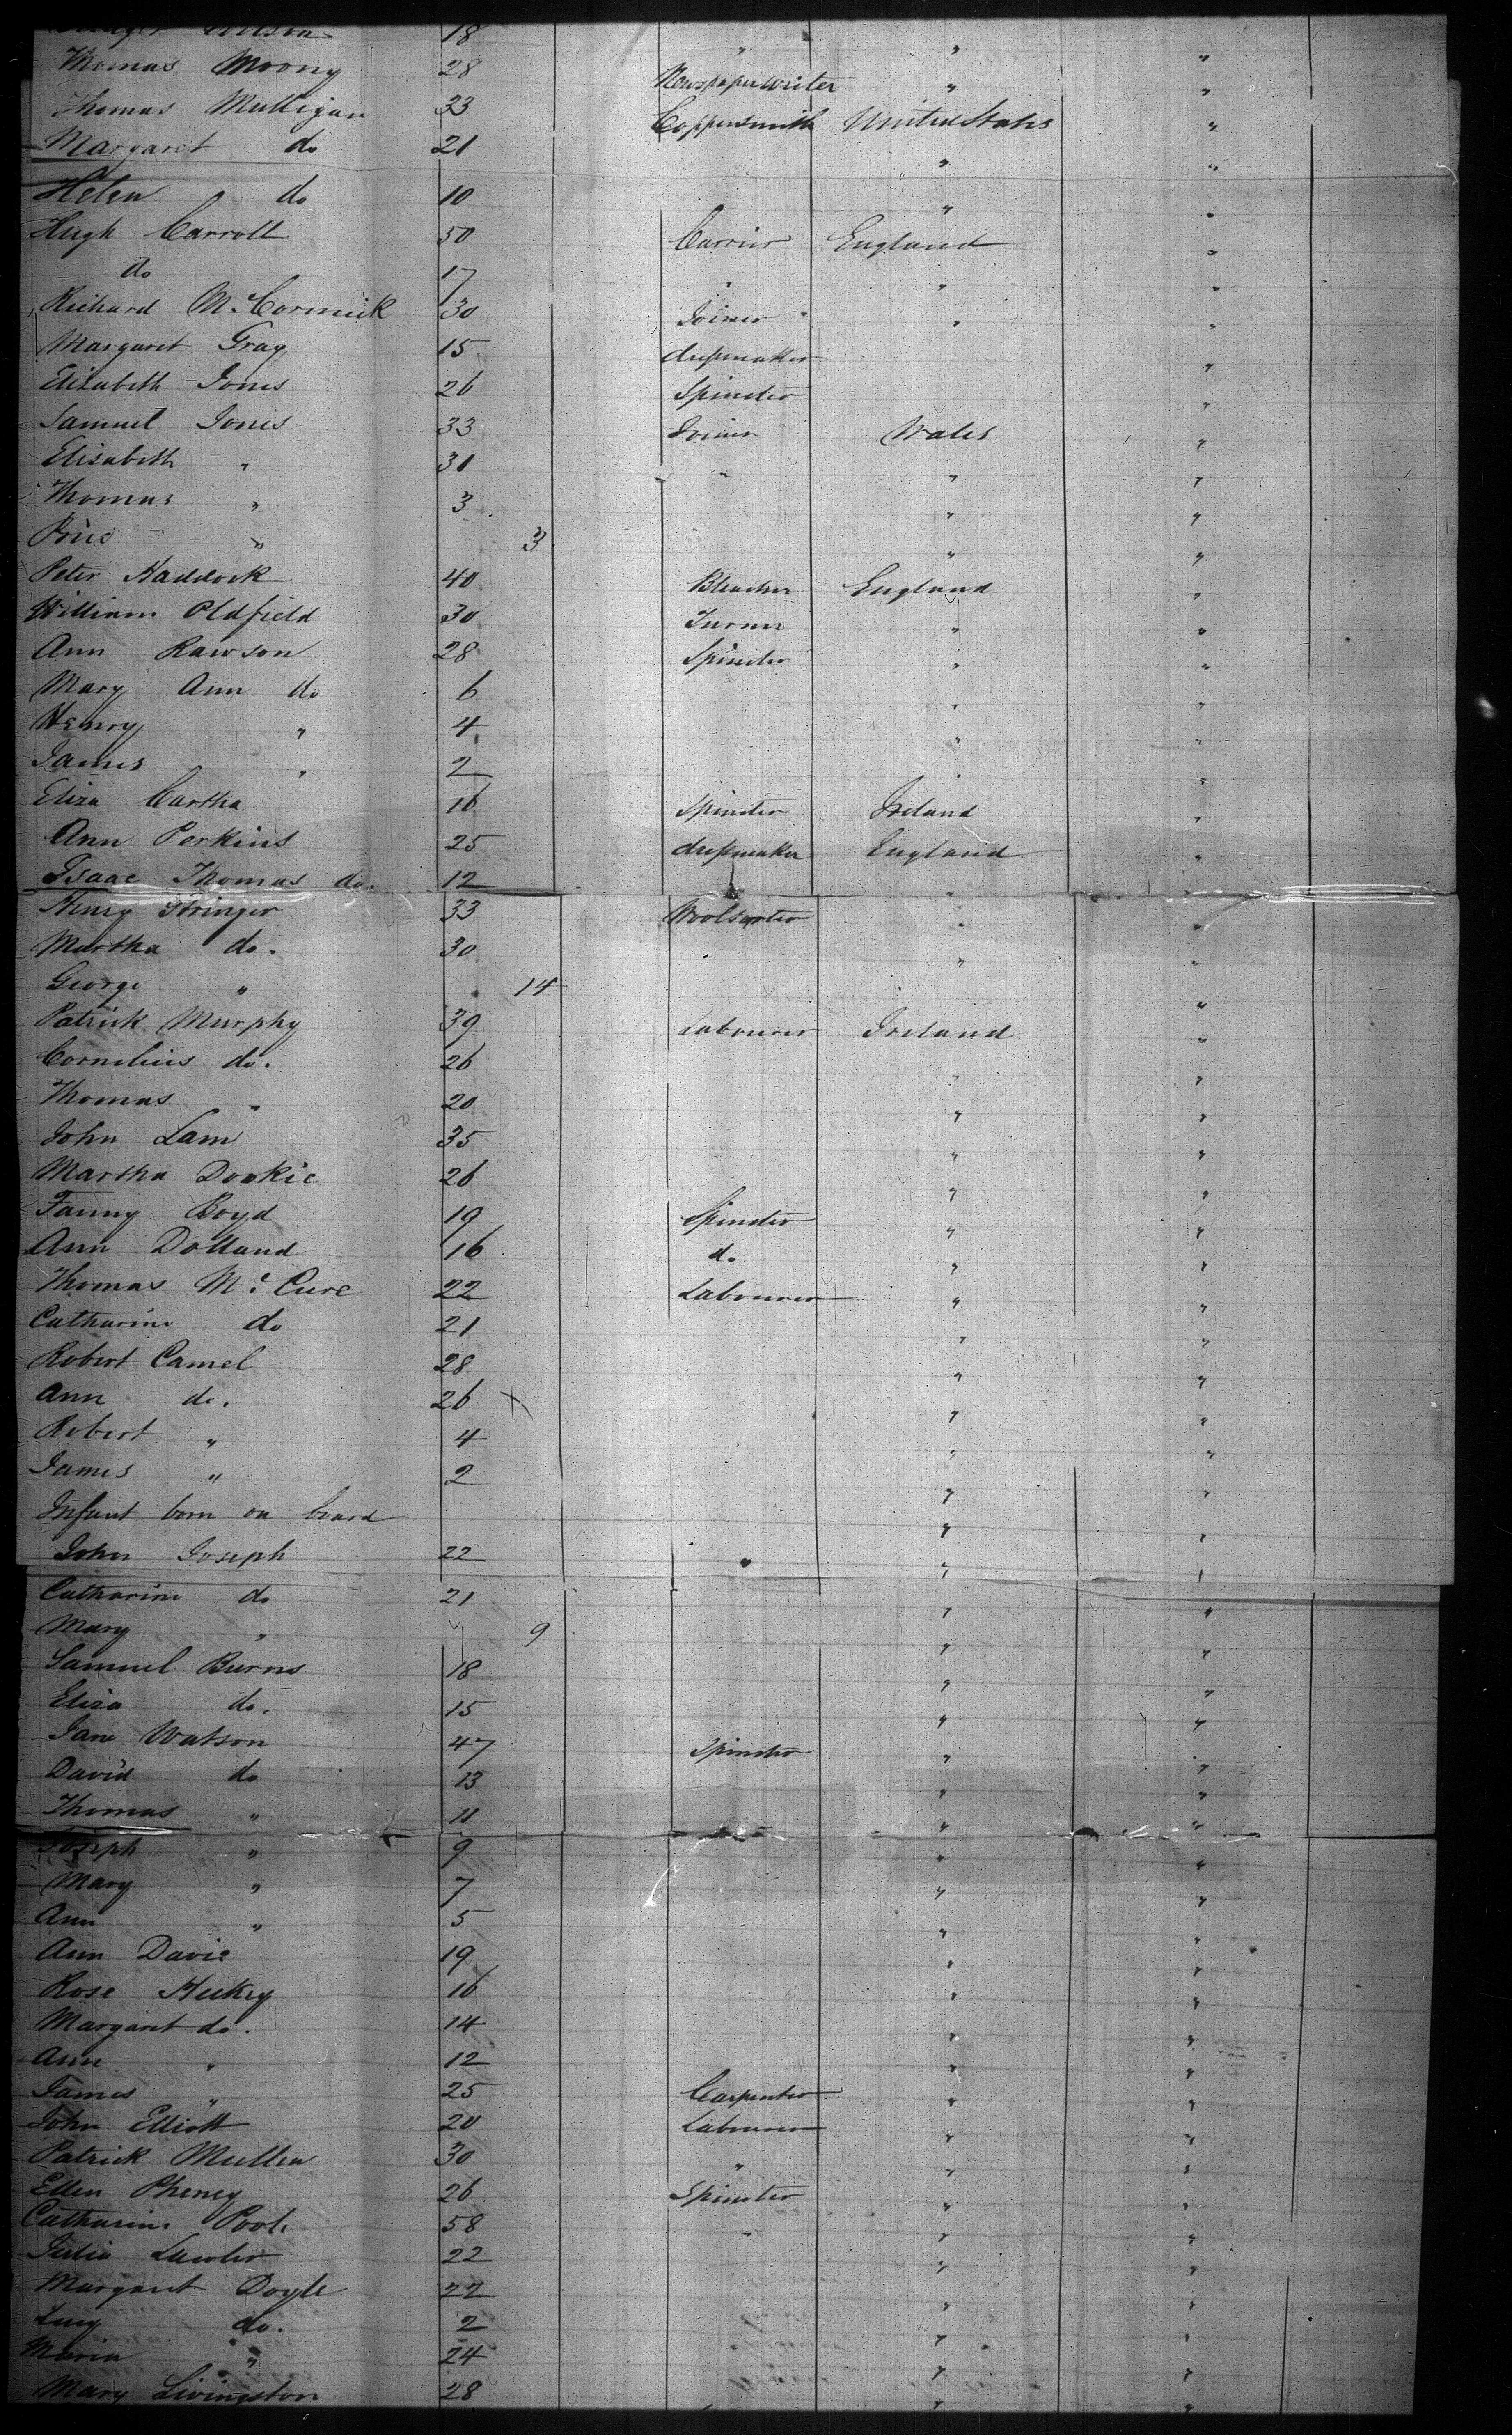 18 " " "
Thomas Moony 28 Newspaper writer " "
Thomas Mulligan 33 Coppersmith United States "
Margaret do 21 " "
Helen do 10 " "
Hugh Carroll 50 Carrier England "
do 17 " " "
Richard McCormick 30 Joiner " "
Margaret Gray 15 dressmaker "
Elizabeth Jones 26 Spinster "
Samuel Jones 33 Joiner Wales "
Elizabeth " 31 " "
Thomas " 3 " "
Price " 3 " "
Peter Haddock 40 Bleacher England "
William Oldfield 30 Turner " "
Ann Rawson 28 Spinster " "
Mary Ann do 6 " "
Henry " 4 " "
James " 2 " "
Eliza Cartha 16 Spinster Ireland "
Ann Perkins 25 dressmaker England "
Isaac Thomas do. 12 " "
Henry Stringer 33 Woolsorter " "
Martha do. 30 " "
George " 14 "
Patrick Murphy 39 Labourer Ireland "
Cornelius do. 26 " "
Thomas " 20 " "
John Lam 35 " "
Martha Dookie 26 " "
Fanny Boyd 19 Spinster " "
Ann Dolland 16 do " "
Thomas McCure 22 Labourer " "
Catharine do 21 " "
Robert Camel 28 " "
Ann do. 26 x " "
Robert " 4 " "
James " 2 " "
Infant born on board " "
John Joseph 22 " " "
Catharine do 21 " "
Mary " 9 " "
Samuel Burns 18 " "
Eliza do. 15 " "
Jane Watson 47 Spinster " "
David do 13 " "
Thomas " 11 " "
Joseph " 9 " "
Mary " 7 " "
Ann " 5 " "
Ann Davie 19 " "
Rose Hickey 16 " "
Margaret do. 14 " "
Ann " 12 " "
James " 25 Carpenter " "
John Elliott 20 Labourer " "
Patrick Mullen 30 " " "
Ellen Pheney 26 Spinster " "
Catharine Poole 58 " " "
Julia Lawler 22 " "
Margaret Doyle 22 " "
Lucy do. 2 " "
Maria " 24 " "
Mary Livingston 28 " "